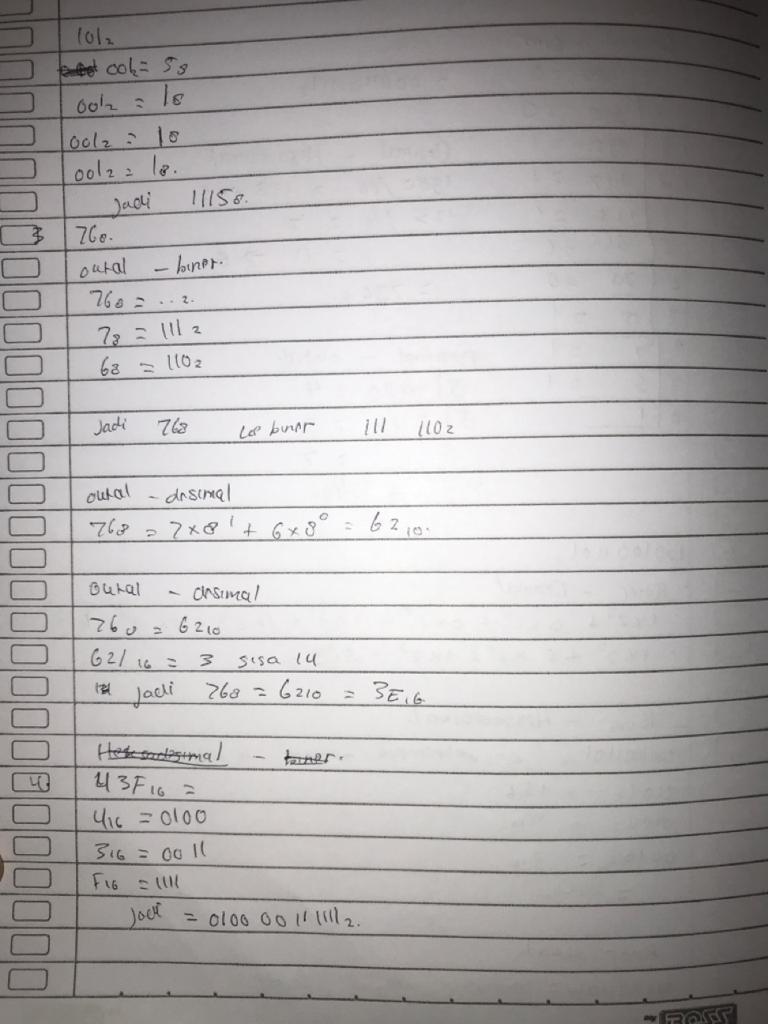 101₂
001₂ = 5₈
001₂ = 1₈
001₂ = 1₈
001₂ = 1₈.
Jadi 1115₈.
3 76₈.
oktal - biner.
76₈ = ..₂.
7₈ = 111₂
6₈ = 110₂
Jadi 76₈ ke biner 111 110₂
oktal - desimal
76₈ = 7×8¹ + 6×8⁰ = 62₁₀.
oktal - desimal
76₈ = 62₁₀
62/16 = 3 sisa 14
Jadi 76₈ = 62₁₀ = 3E₁₆
Heksadesimal - biner.
4 43F₁₆ =
4₁₆ = 0100
3₁₆ = 0011
F₁₆ = 1111
Jadi = 0100 0011 1111₂.
BOSS